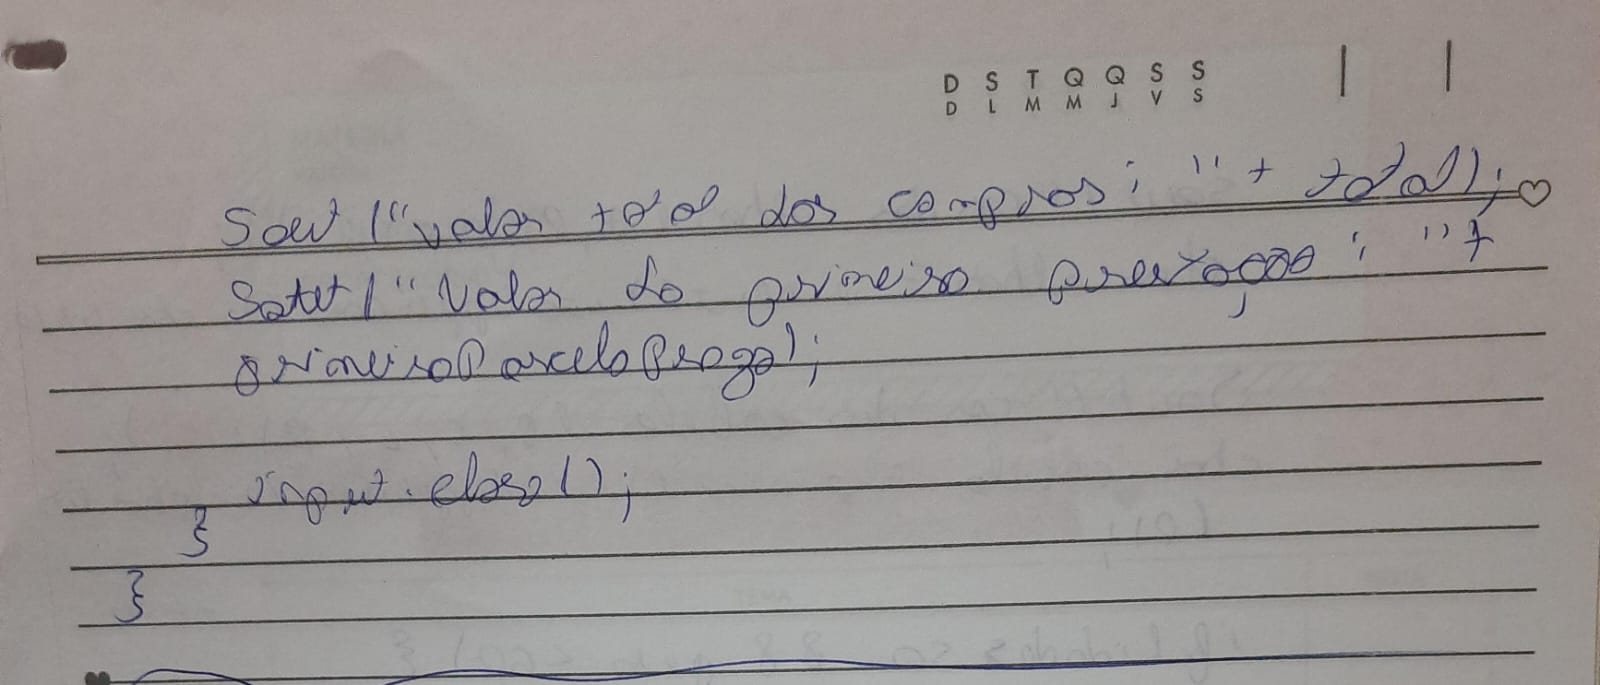 D S T Q Q S S
D L M M J V S
Sout ("valor total das compras: " + total);
Sout ("Valor da primeira prestação: " +
primeiraParcelaPraga);
input.close();
}
}